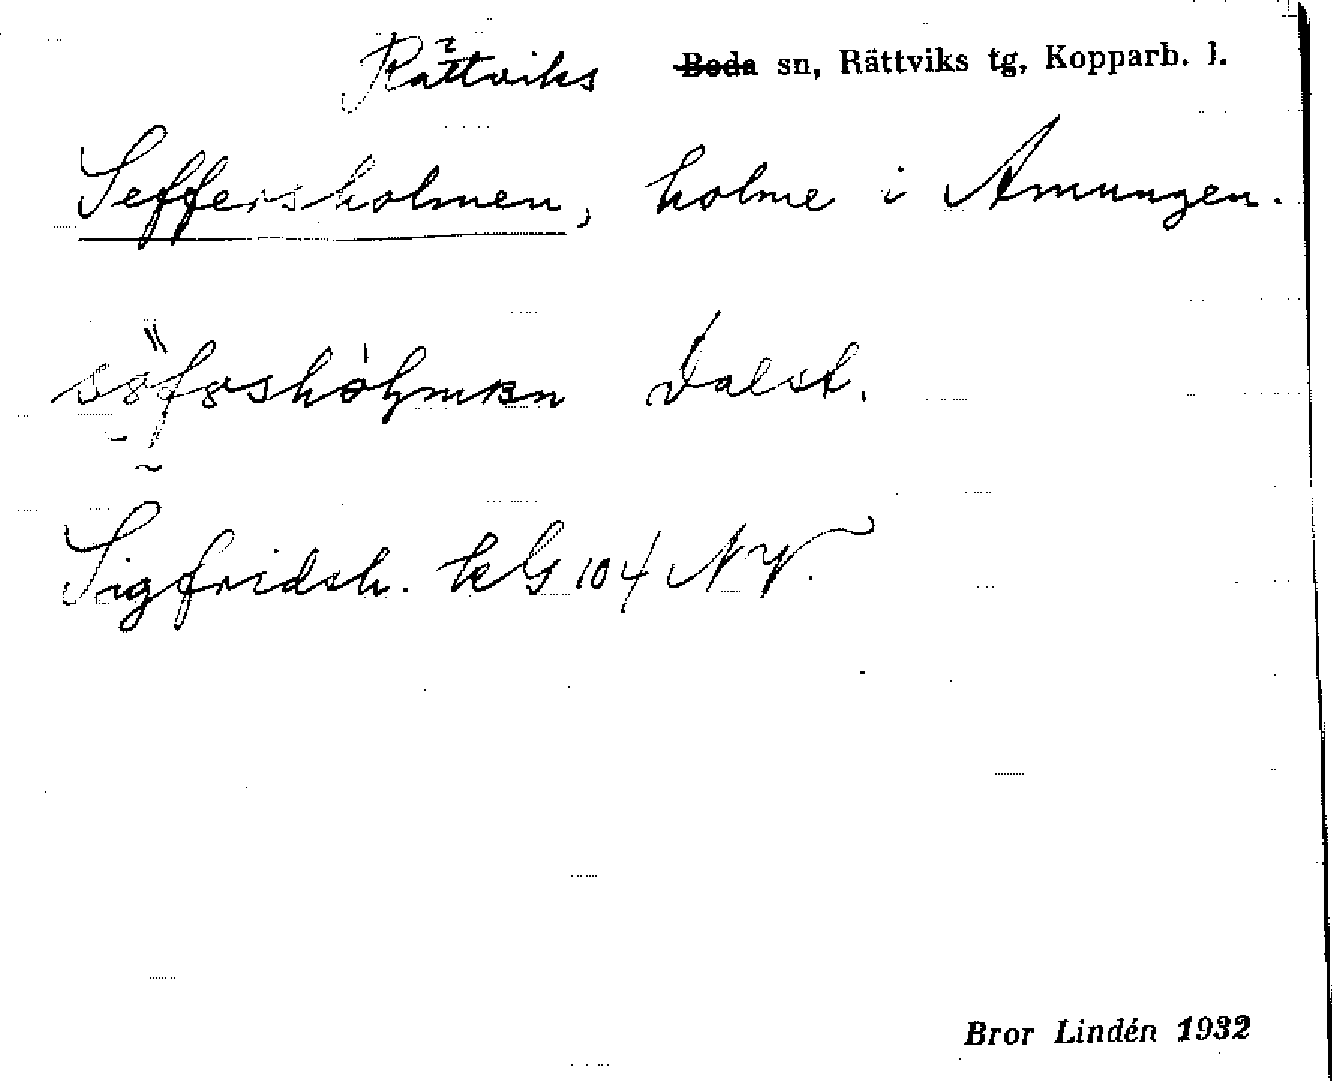 Rättviks ~~Boda~~ sn, Rättviks tg, Kopparb. l.
Seffersholmen, holme i Amungen.
Dalst.
Sigfridsh. kG 104 NV.
Bror Lindén 1932